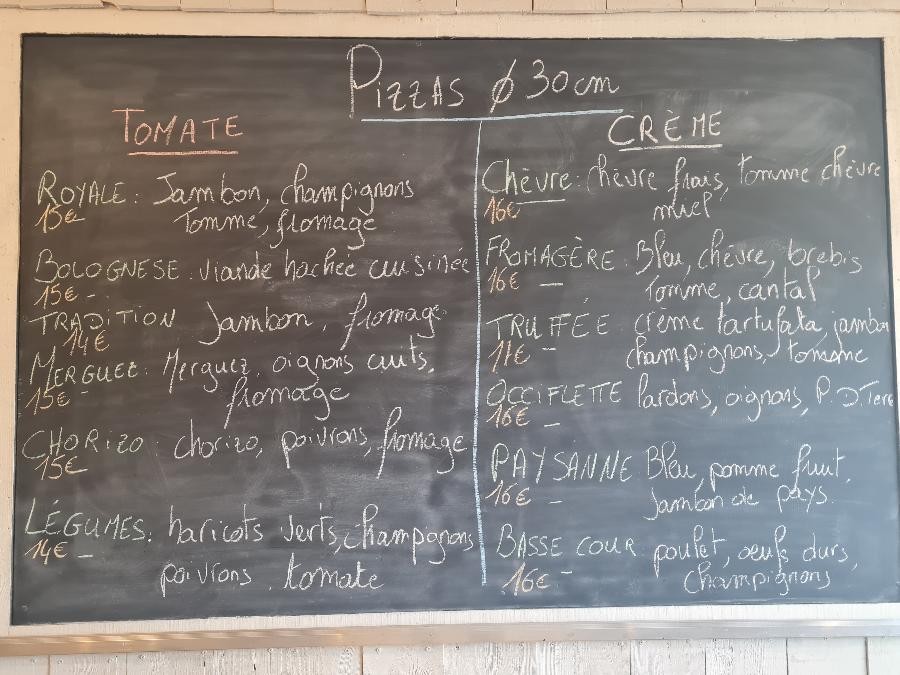 PIZZAS Ø 30cm
TOMATE
ROYALE : Jambon, champignons
15€ Tomme, fromage
BOLOGNESE : viande hachée cuisinée
15€ -
TRADITION Jambon, fromage
14€
MERGUEZ : Merguez, oignons cuits,
15€ - fromage
CHORIZO : chorizo, poivrons, fromage
15€
LÉGUMES : haricots verts, champignons
14€ - poivrons, tomate
CRÈME
Chèvre : chèvre frais, tomme chèvre
16€ miel
FROMAGÈRE : Bleu, chèvre, brebis
16€ - Tomme, cantal
TRUFFÉE crème tartufata, jambon
- champignons, tomme
OCCIFLETTE lardons, oignons, P.D.Terre
16€ -
PAYSANNE Bleu, pomme fruit,
16€ - Jambon de pays
BASSE COUR poulet, oeufs durs,
16€ - champignons